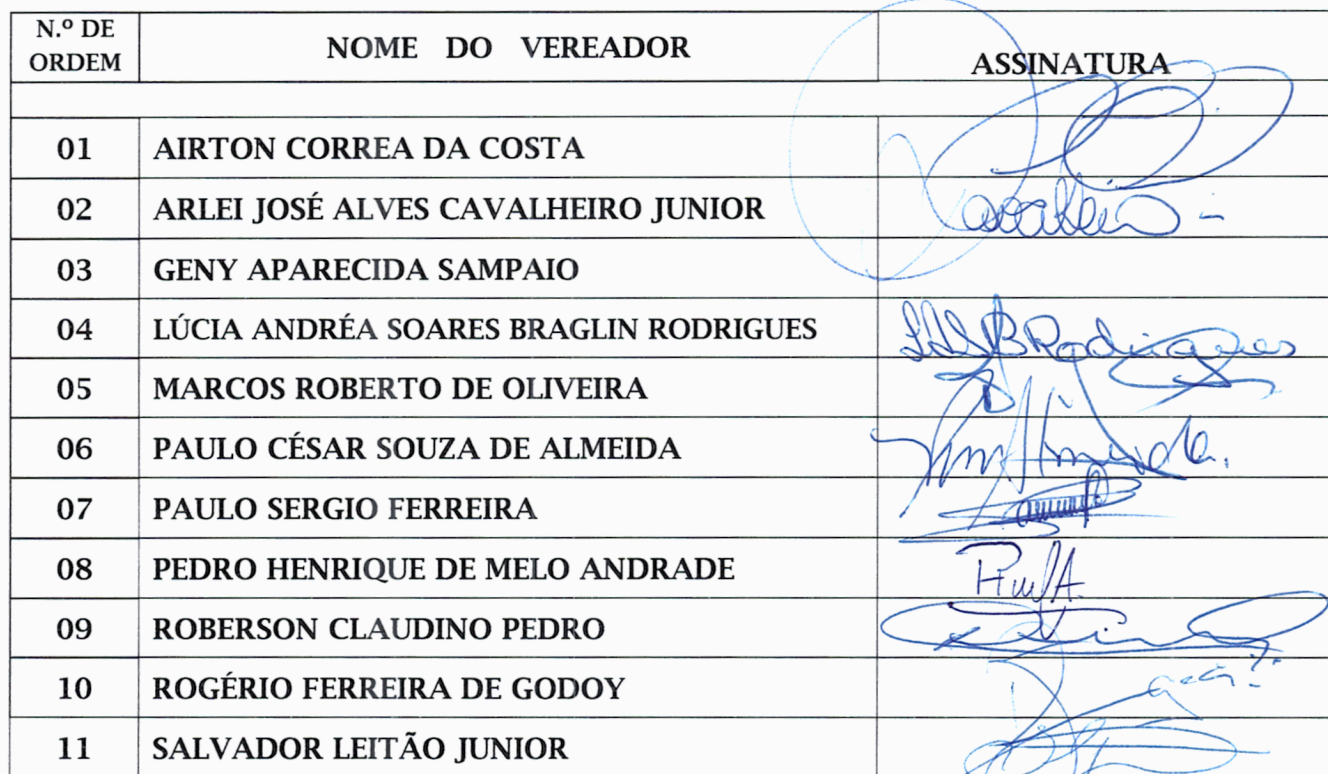 N.º DE ORDEM NOME DO VEREADOR ASSINATURA
01 AIRTON CORREA DA COSTA
02 ARLEI JOSÉ ALVES CAVALHEIRO JUNIOR
03 GENY APARECIDA SAMPAIO
04 LÚCIA ANDRÉA SOARES BRAGLIN RODRIGUES LASBRodrigues
05 MARCOS ROBERTO DE OLIVEIRA
06 PAULO CÉSAR SOUZA DE ALMEIDA
07 PAULO SERGIO FERREIRA
08 PEDRO HENRIQUE DE MELO ANDRADE
09 ROBERSON CLAUDINO PEDRO
10 ROGÉRIO FERREIRA DE GODOY
11 SALVADOR LEITÃO JUNIOR